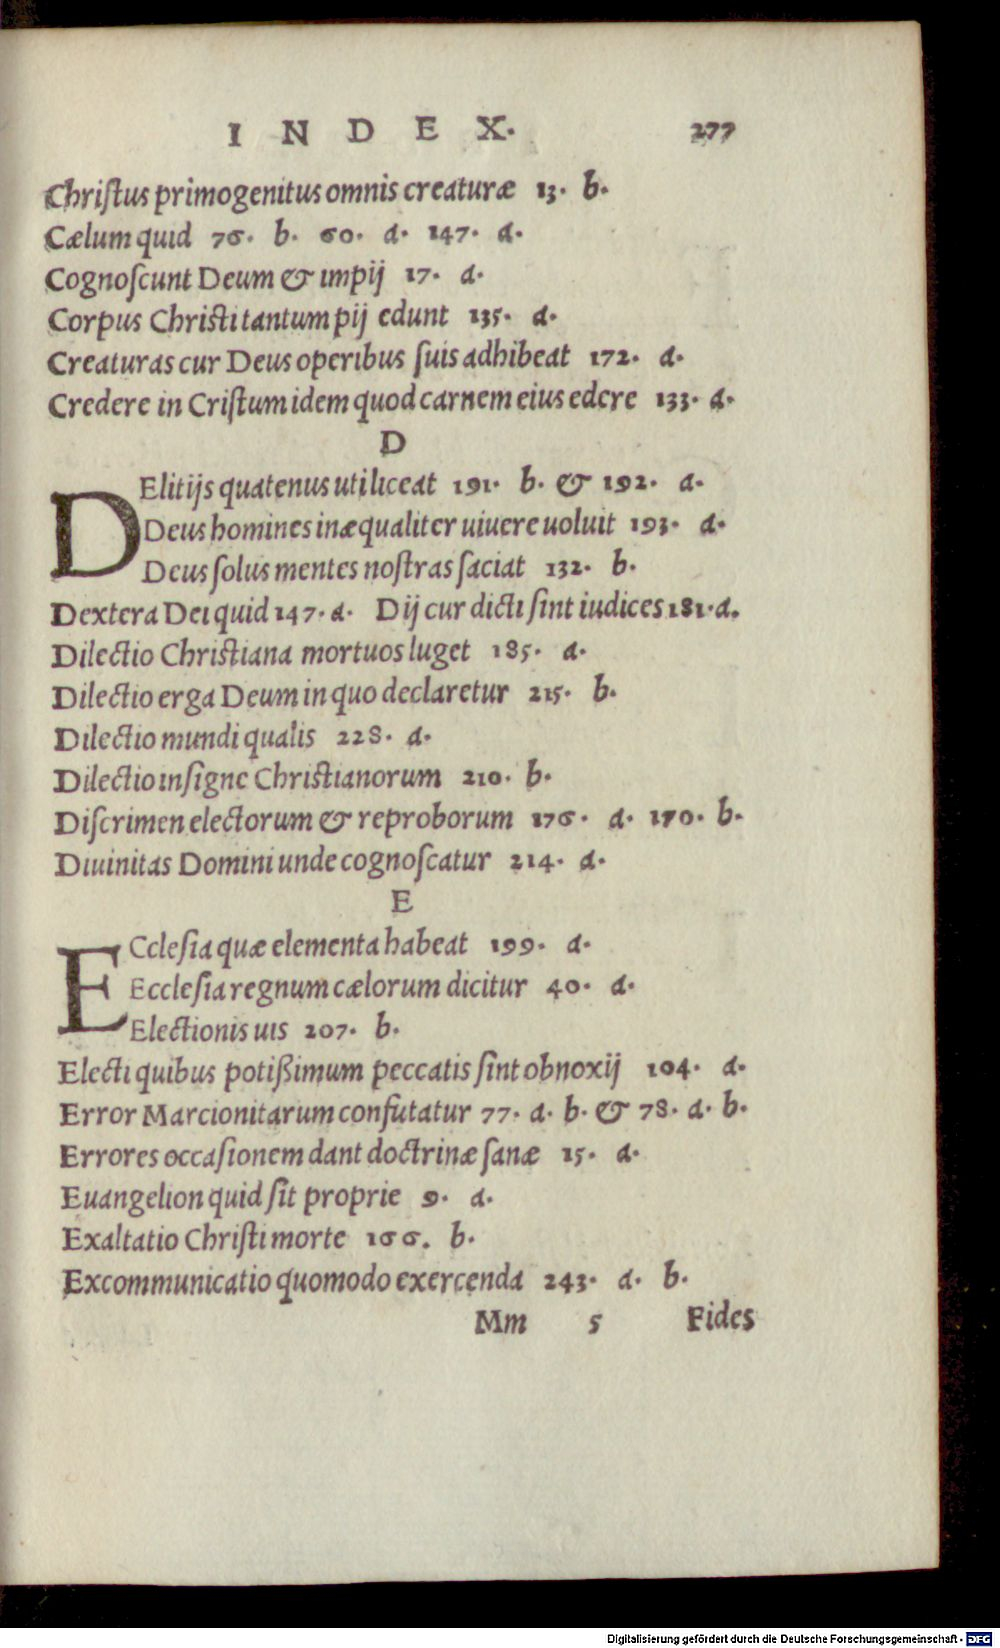 INDEX. 277
Chriſtus primogenitus omnis creaturæ 13. b.
Cælum quid 76. b. 60. a. 147. a.
Cognoſcunt Deum & impij 17. a.
Corpus Chriſti tantum pij edunt 135. a.
Creaturas cur Deus operibus ſuis adhibeat 172. a.
Credere in Criſtum idem quod carnem eius edere 133. a.
D
DElitijs quatenus uti liceat 191. b. & 192. a.
Deus homines inæqualiter uiuere uoluit 193. a.
Deus ſolus mentes noſtras ſaciat 132. b.
Dextera Dei quid 147. a. Dij cur dicti ſint iudices 181. a.
Dilectio Chriſtiana mortuos luget 185. a.
Dilectio erga Deum in quo declaretur 215. b.
Dilectio mundi qualis 228. a.
Dilectio inſigne Chriſtianorum 210. b.
Diſcrimen electorum & reproborum 176. a. 170. b.
Diuinitas Domini unde cognoſcatur 214. a.
E
ECcleſia quæ elementa habeat 199. a.
Eccleſia regnum cælorum dicitur 40. a.
Electionis uis 207. b.
Electi quibus potißimum peccatis ſint obnoxij 104. a.
Error Marcionitarum confutatur 77. a. b. & 78. a. b.
Errores occaſionem dant doctrinæ ſanæ 15. a.
Euangelion quid ſit proprie 9. a.
Exaltatio Chriſti morte 166. b.
Excommunicatio quomodo exercenda 243. a. b.
Mm 5 Fides
Digitalisierung gefördert durch die Deutsche Forschungsgemeinschaft - DFG